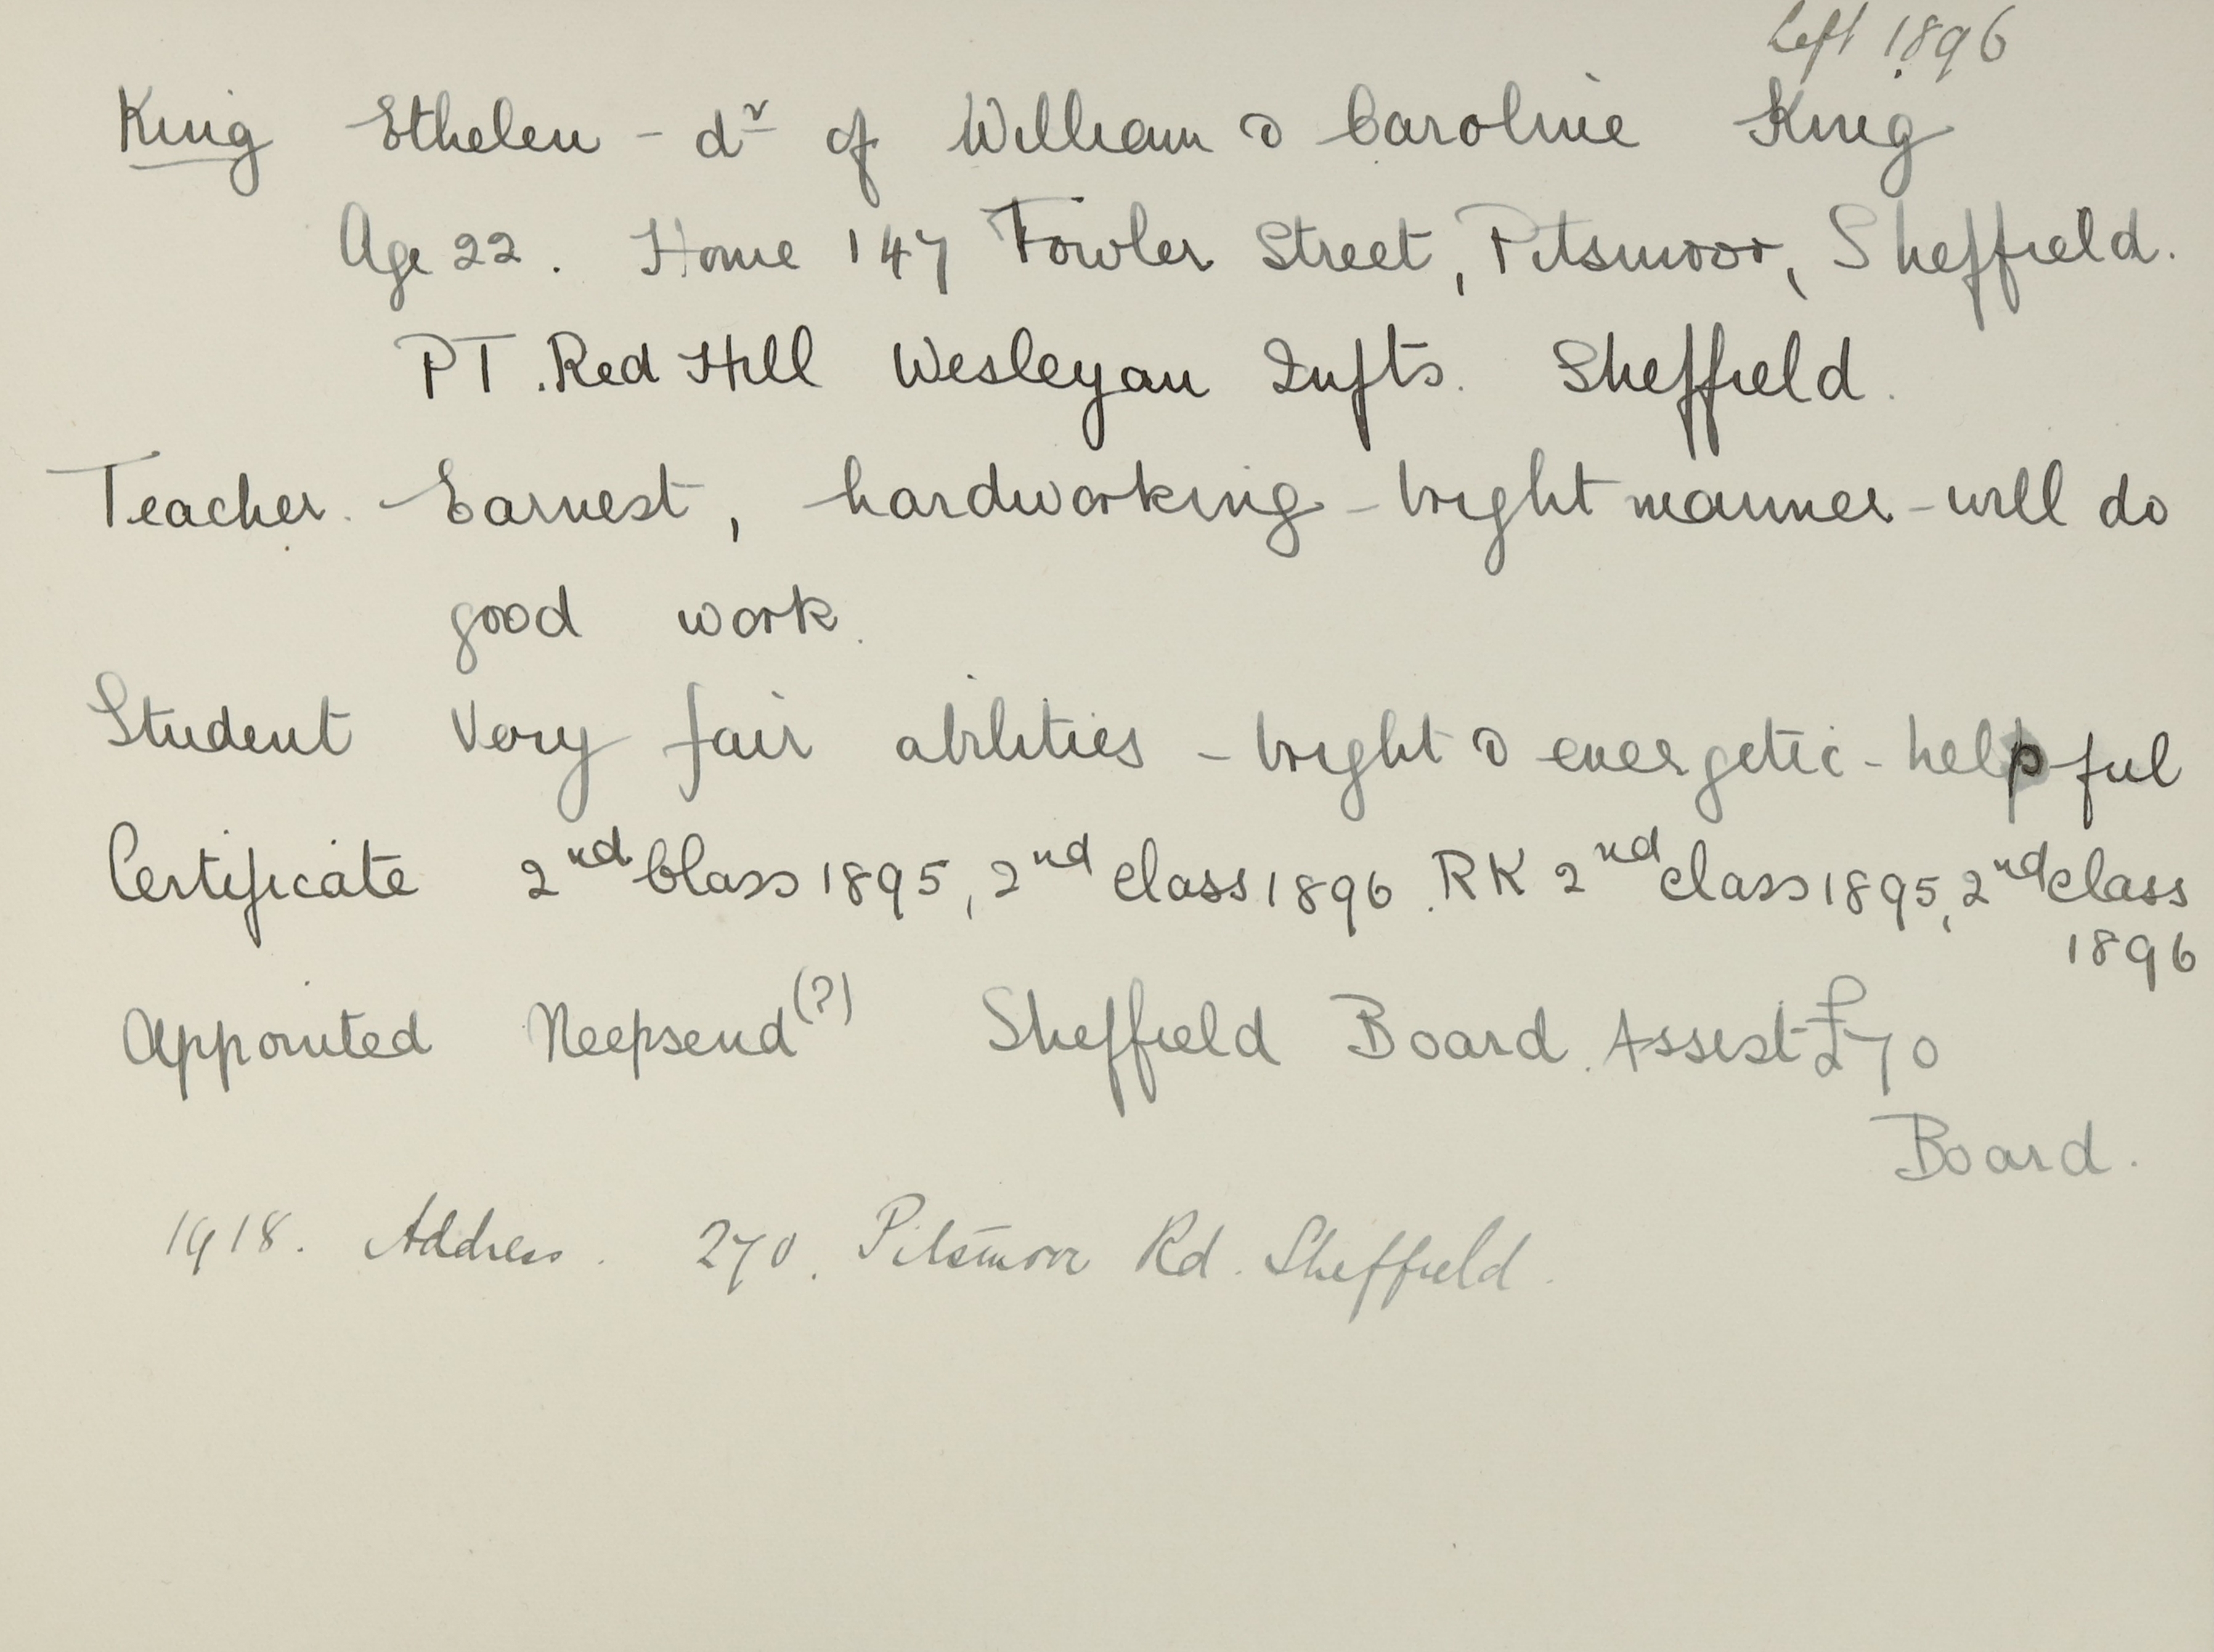 Left 1896
King Ethelen - dr of William & Caroline King
Age 22. Home 147 Fowler Street, Pitsmoor, Sheffield.
PT. Red Hill Wesleyan Infts. Sheffield.
Teacher. Earnest, hardworking - bright manner - will do
good work.
Student Very fair abilities - bright & energetic - helpful
Certificate 2nd Class 1895, 2nd class 1896. RK 2nd class 1895, 2nd class
1896
Appointed Neepsend (?) Sheffield Board. Assist £70
Board.
1918. Address. 270. Pitsmoor Rd. Sheffield.